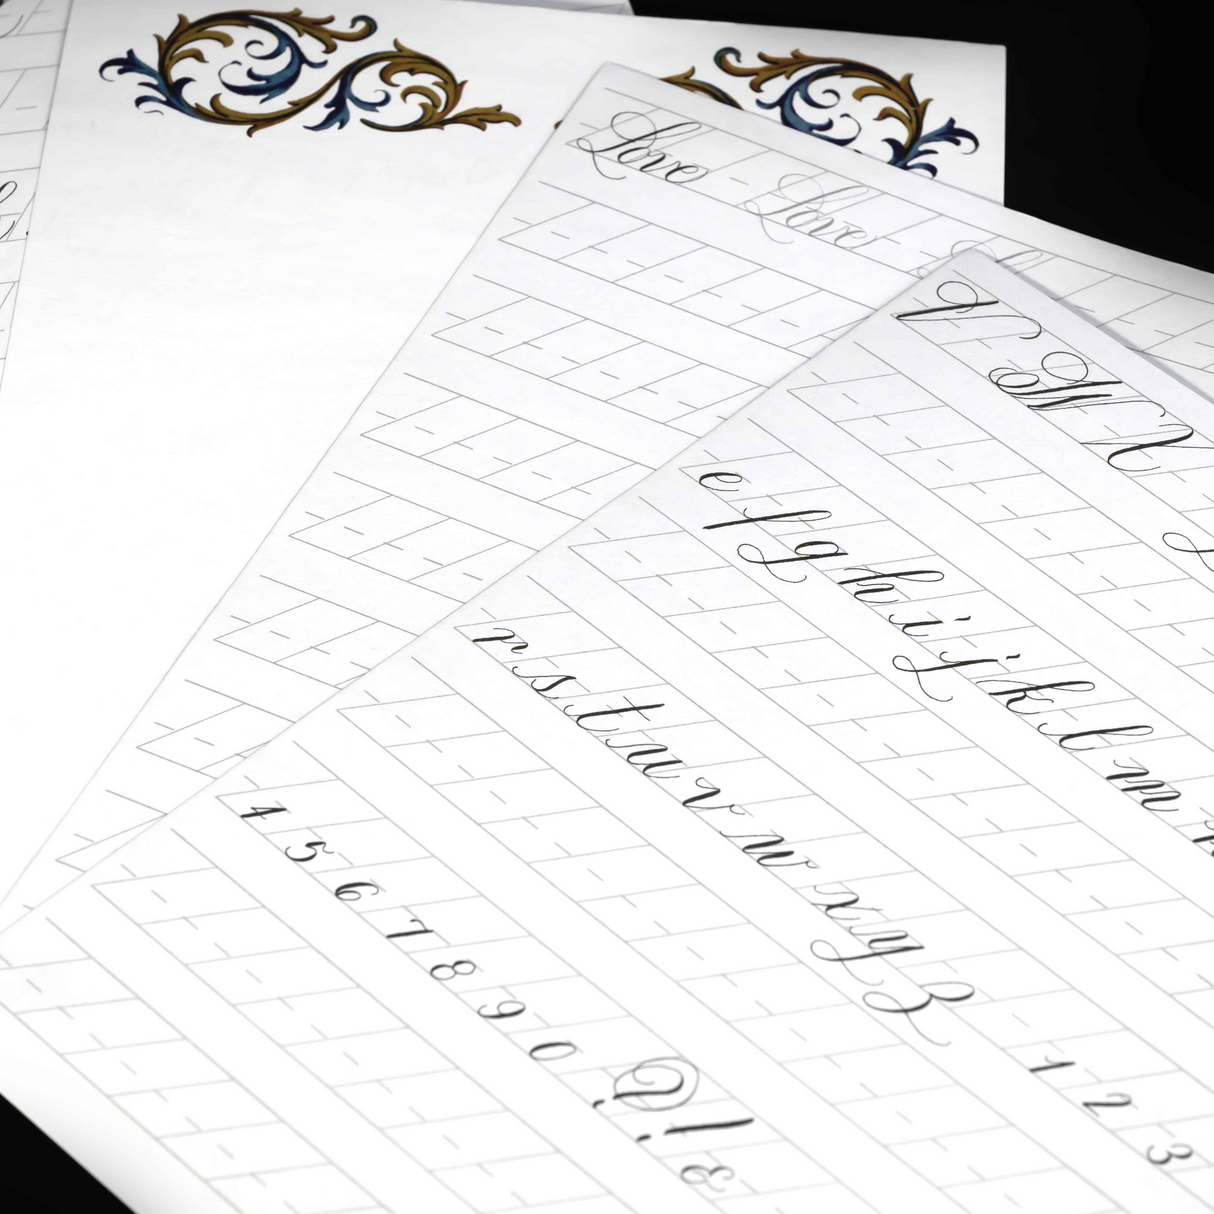 Love - Love
V W
e f g h i j k l m
r s t u v w x y z
1 2 3
4 5 6 7 8 9 0 @ ! &